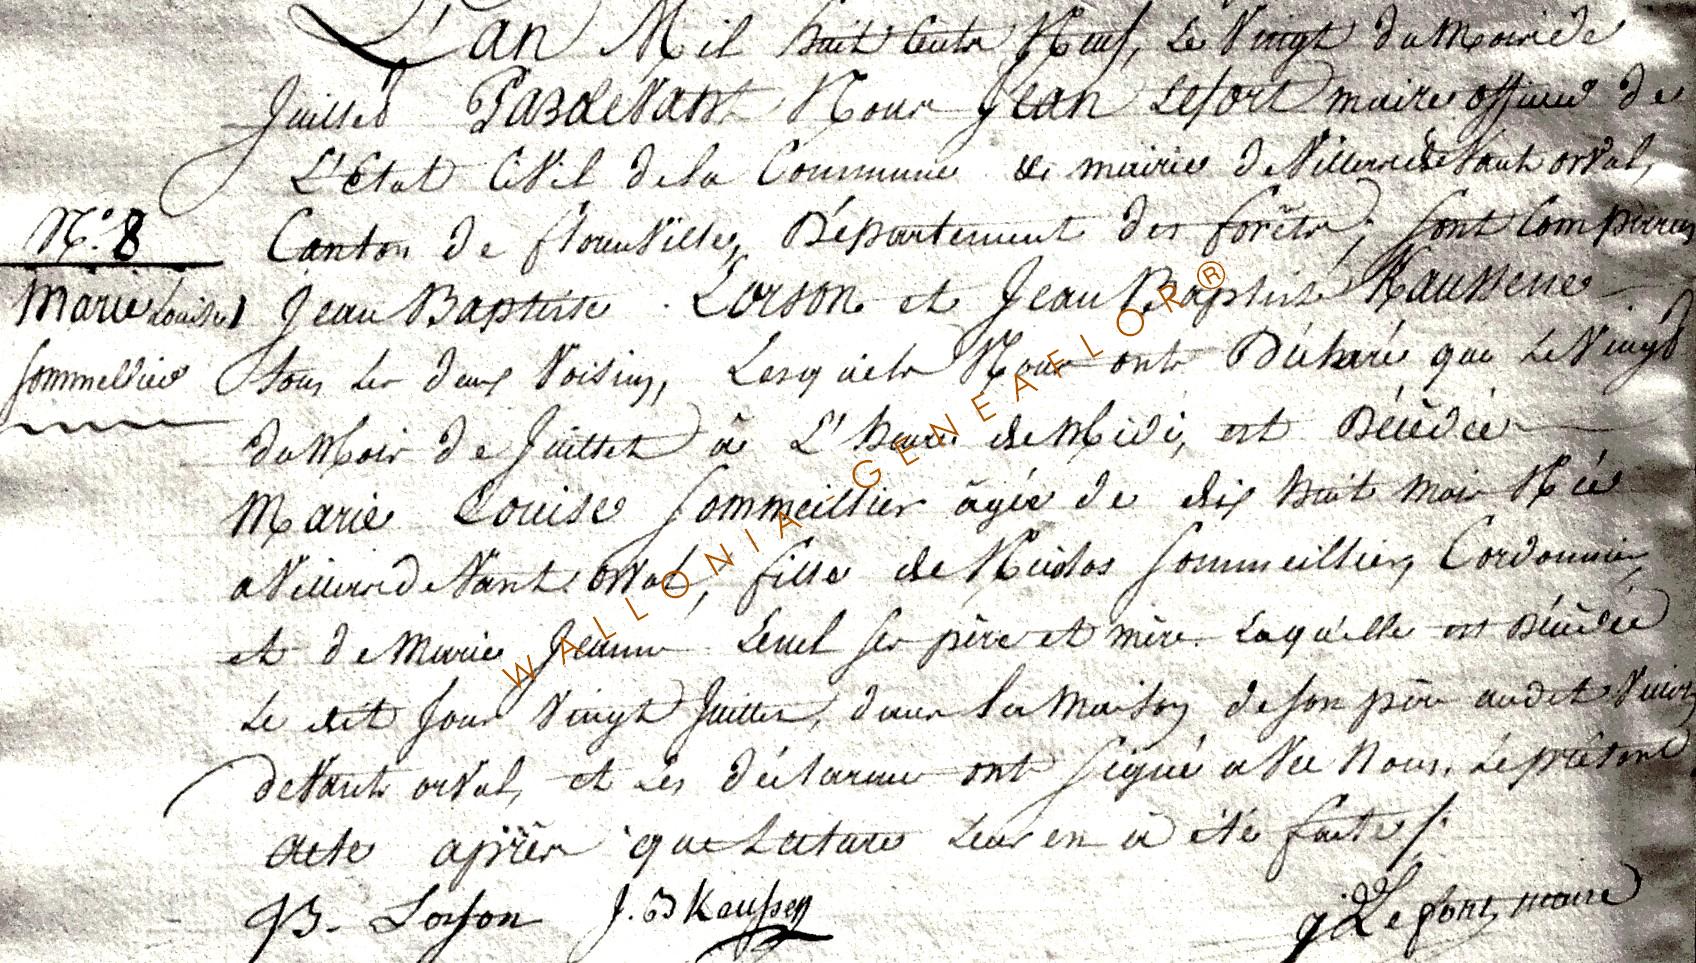 L'an Mil huit Cents Neuf, Le Vingt du Mois de
Juillet Pardevant Nous Jean Lefort maire officier de
L'Etat Civil de la Commune & mairie de Villers devant orval,
N.o 8
Canton de florenville, Département des forêts, sont Comparus
Marie Louise
Jean Baptiste Lorson et Jean Baptiste Kaussene
Sommellier
tous les deux Voisins, Lesquels Nous ont Déclaré que Le Vingt
du Mois de Juillet à L'heure de Midi, est Décédée
Marie Louise Sommeillier âgée de dix huit mois Née
a Villers devant orval, fille de Nicolas Sommeillier, Cordonnier,
et de Marie Jeanne ses père et mère. Laquelle est Décédée
Le dit Jour Vingt Juillet, dans la Maison de son père audit
devant orval, et Les déclarans ont signé avec Nous, Le présent
acte après que Lecture Leur en à été faite /.
JB. Lorson J. B Kaussen
J Lefort, maire
WALLONIA GENEAFLOR®